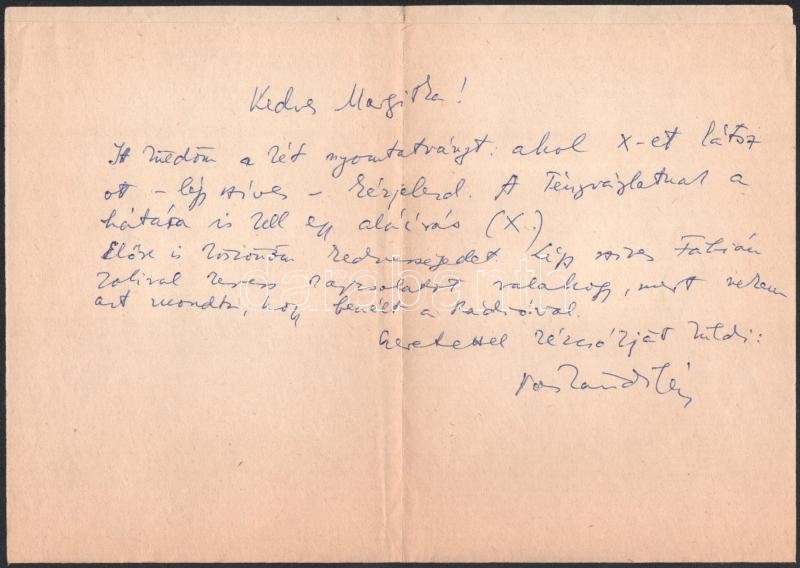 Kedves Margitka!
Itt küldöm a két nyomtatványt: ahol X-et látsz
ott – légy szíves – kézjeleld. A Tényvázlatnak a
hátára is kell egy aláírás (X.)
Előre is köszönöm kedvességedet. Légy szíves Fábián
Zolival keress kapcsolatot valahogy, mert nekem
azt mondta, hogy beszélt a Rádióval.
Szeretettel kézcsókját küldi:
darabanth